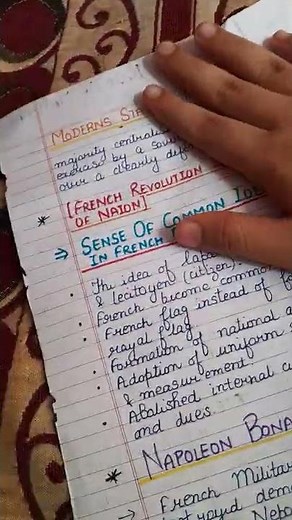 MODERNS ST
majority centrali
exercise by a sov
over a clearly def
* [FRENCH REVOLUTION
OF NAION]
⇒ SENSE OF COMMON IDE
IN FRENCH
• The idea of lapa
& lecitoyen (citizen).
• French become common
• French flag instead of
royal flag
• Formation of national a
• Adoption of uniform s
& measurement
• Abolished internal cu
and dues.
* NAPOLEON BONA
→ French Militar
troyd dem
Nepo